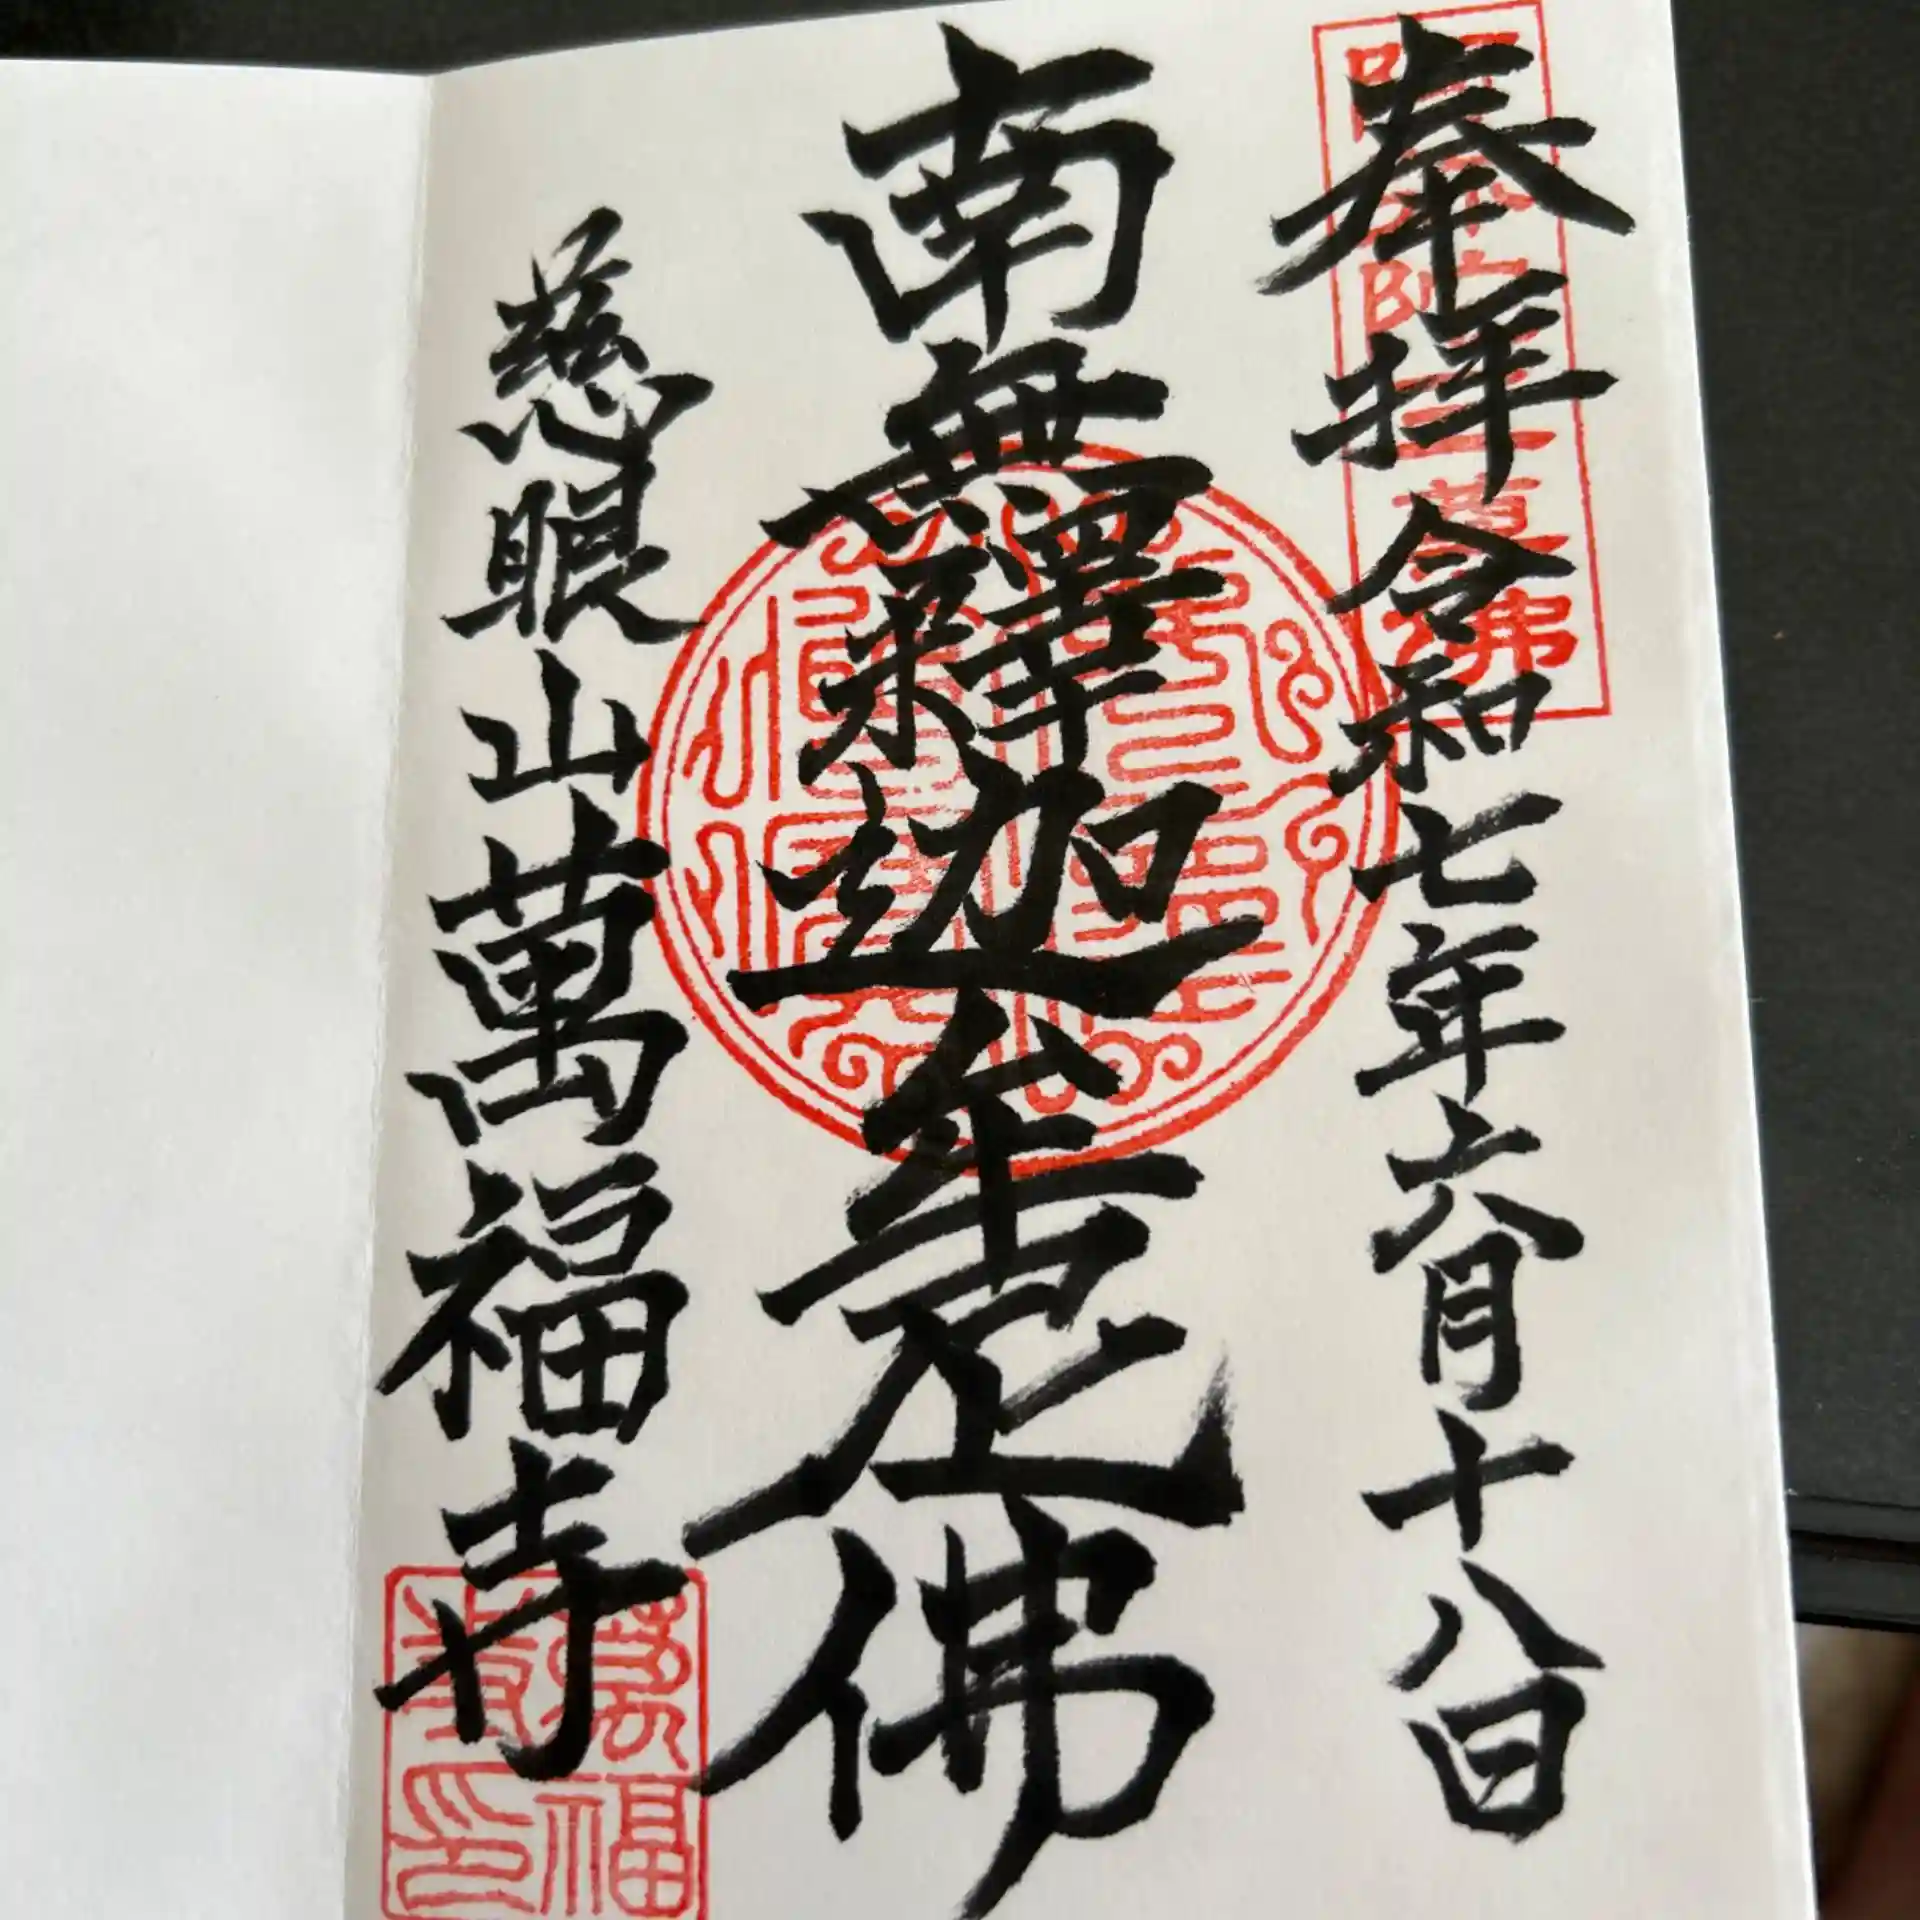 奉拝 令和七年六月十八日
南無釋迦牟尼佛
慈眼山萬福寺
萬福
寺印